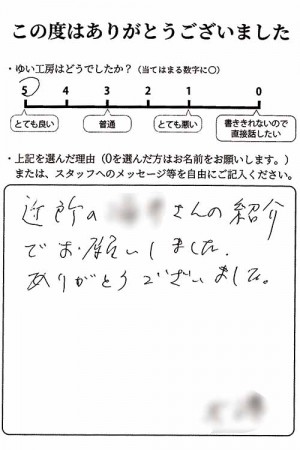 この度はありがとうございました
・ゆい工房はどうでしたか？（当てはまる数字に○）
5 4 3 2 1 0
とても良い 普通 とても悪い 書ききれないので直接話したい
・上記を選んだ理由（0を選んだ方はお名前をお願いします。）
または、スタッフへのメッセージ等を自由にご記入ください。
近所の さんの紹介
でお願いしました.
ありがとうございました。